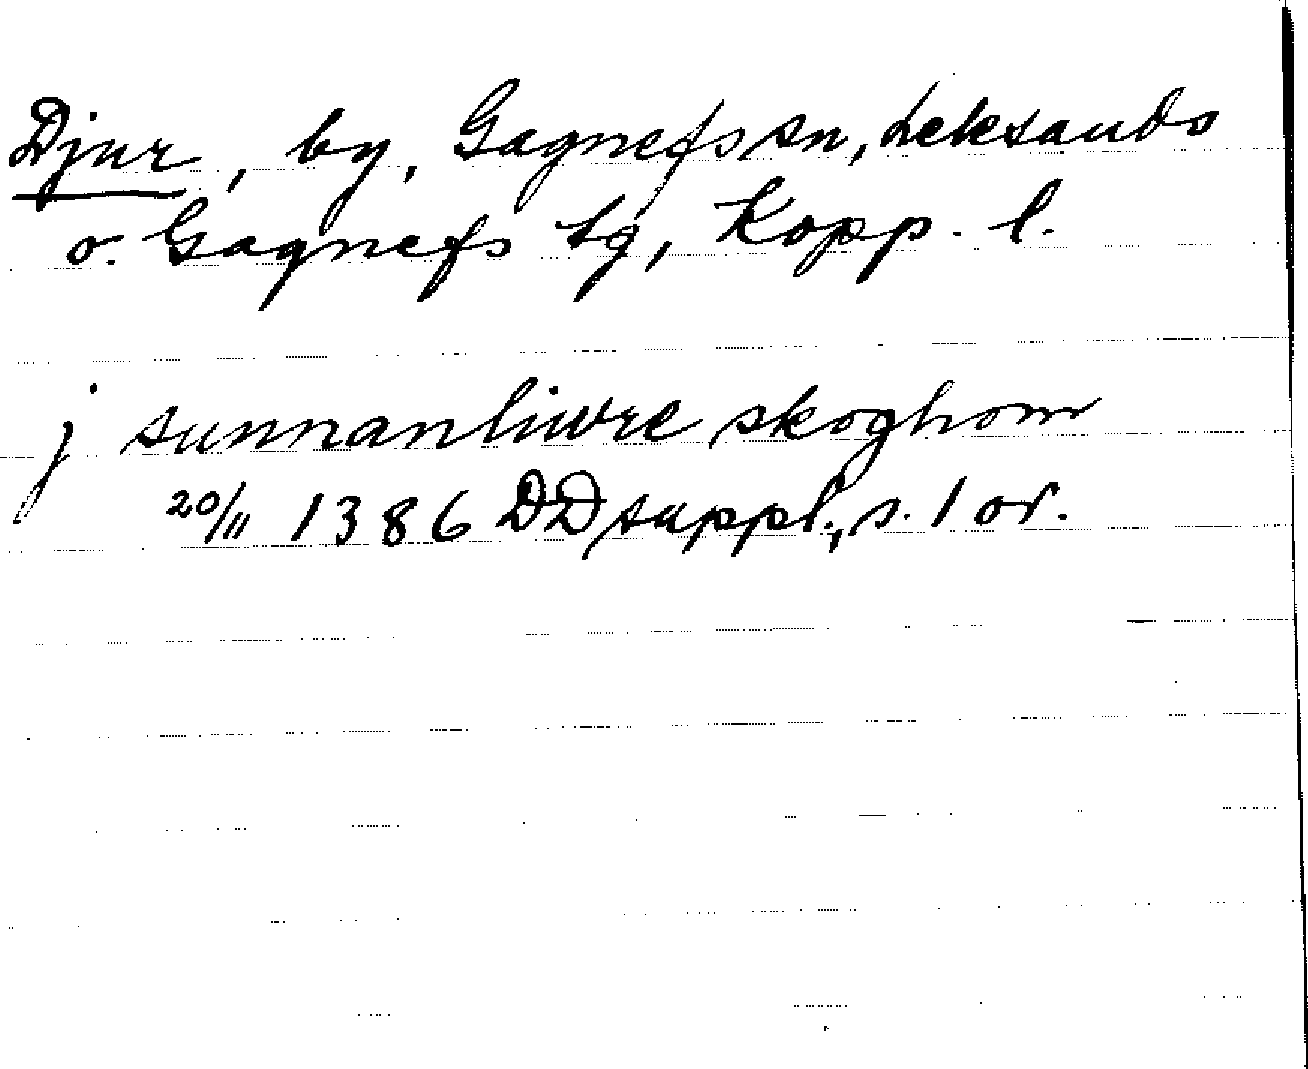 Djur, by, Gagnefs sn, Leksands
o. Gagnefs tg, Kopp. l.
j sunnanliwre skoghom
20/11 1386 DD suppl., s. 1 or.